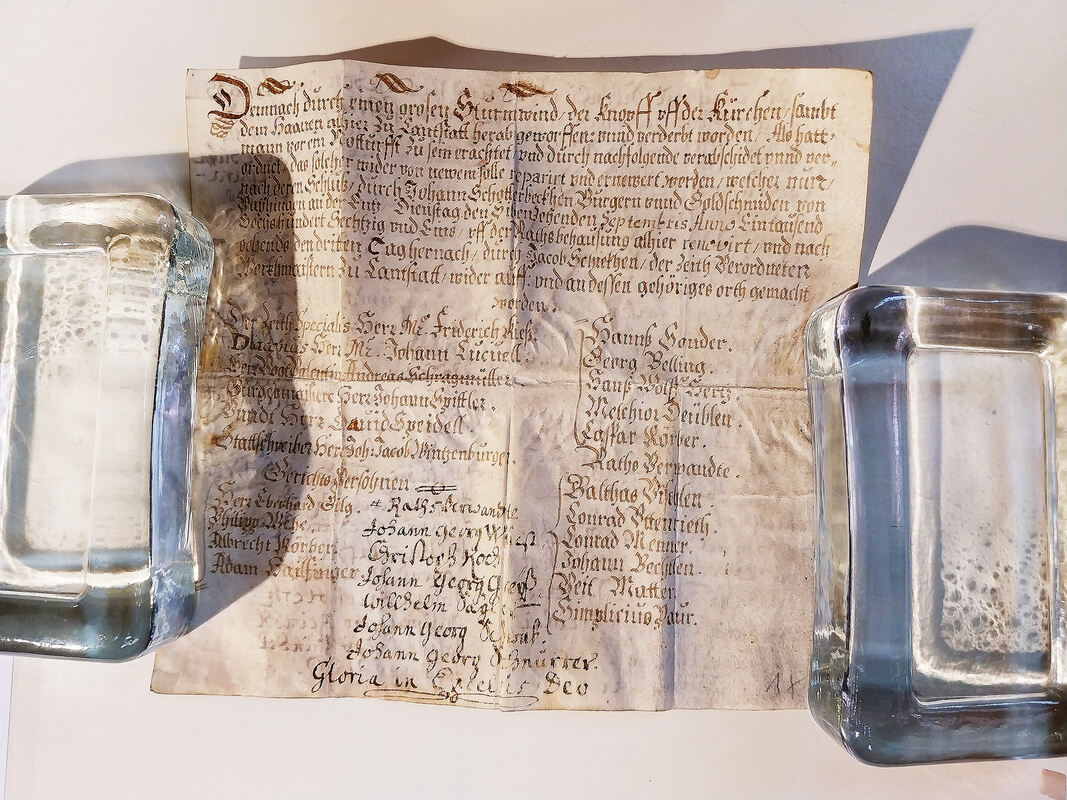 Demnach durch einen grosen Sturmwind / der Knopff vff der Kürchen / sanbt
dem Haanen alhier zu Cantstatt herab geworffen: vnnd verderbt worden / Als hatt
mann vor ein Notturfft zu sein erachtet / vnd durch nachfolgende verabschidet vnnd ver-
ordnet / das solcher wider von newem solle reparirt vnd ernewert werden / welcher nun /
nach deren Schluß / durch Johann Burgern vnnd Goldschmiden von
Vayhingen an der Entz / Dienstag den Sibenzehenden Septembris Anno Eintausend
Sechshundert Sechtzig vnd Eins / vff der Rathsbehausung alhier renovirt / vnd nach
gehends den dritten Tag hernach / durch Jacob der Zeith Verordneter
zu Cantstatt / wider auff: vnd an dessen gehöriges orth gemacht
worden.
Der Zeith Specialis Herr Mr. Friderich Rieß.
Diaconus Herr Mr. Johann
Herr Andreas Schragmüller.
Burgermaistere Herr Johann Spittler.
Vnndt Herr Dauid Speidell.
Stattschreiber Herr Joh: Jacob Wintzenburger.
Gerichts Persohnen
Herr Eberhard
Philipp
Albrecht Körber.
Adam Hailfinger
Rathsverwandte
Johann Georg
Christoph Koch
Johann Georg
Willhelm
Johann Georg
Johann Georg Schnürrer.
Hannß Honder.
Georg Belling.
Hannß Wolff
Melchior Deüblen.
Caspar Körber.
Raths Verwandte.
Balthas
Conrad
Conrad Menner.
Johann Bechlen.
Veit Mutter.
Simplicius Baur.
Gloria in Excelsis Deo